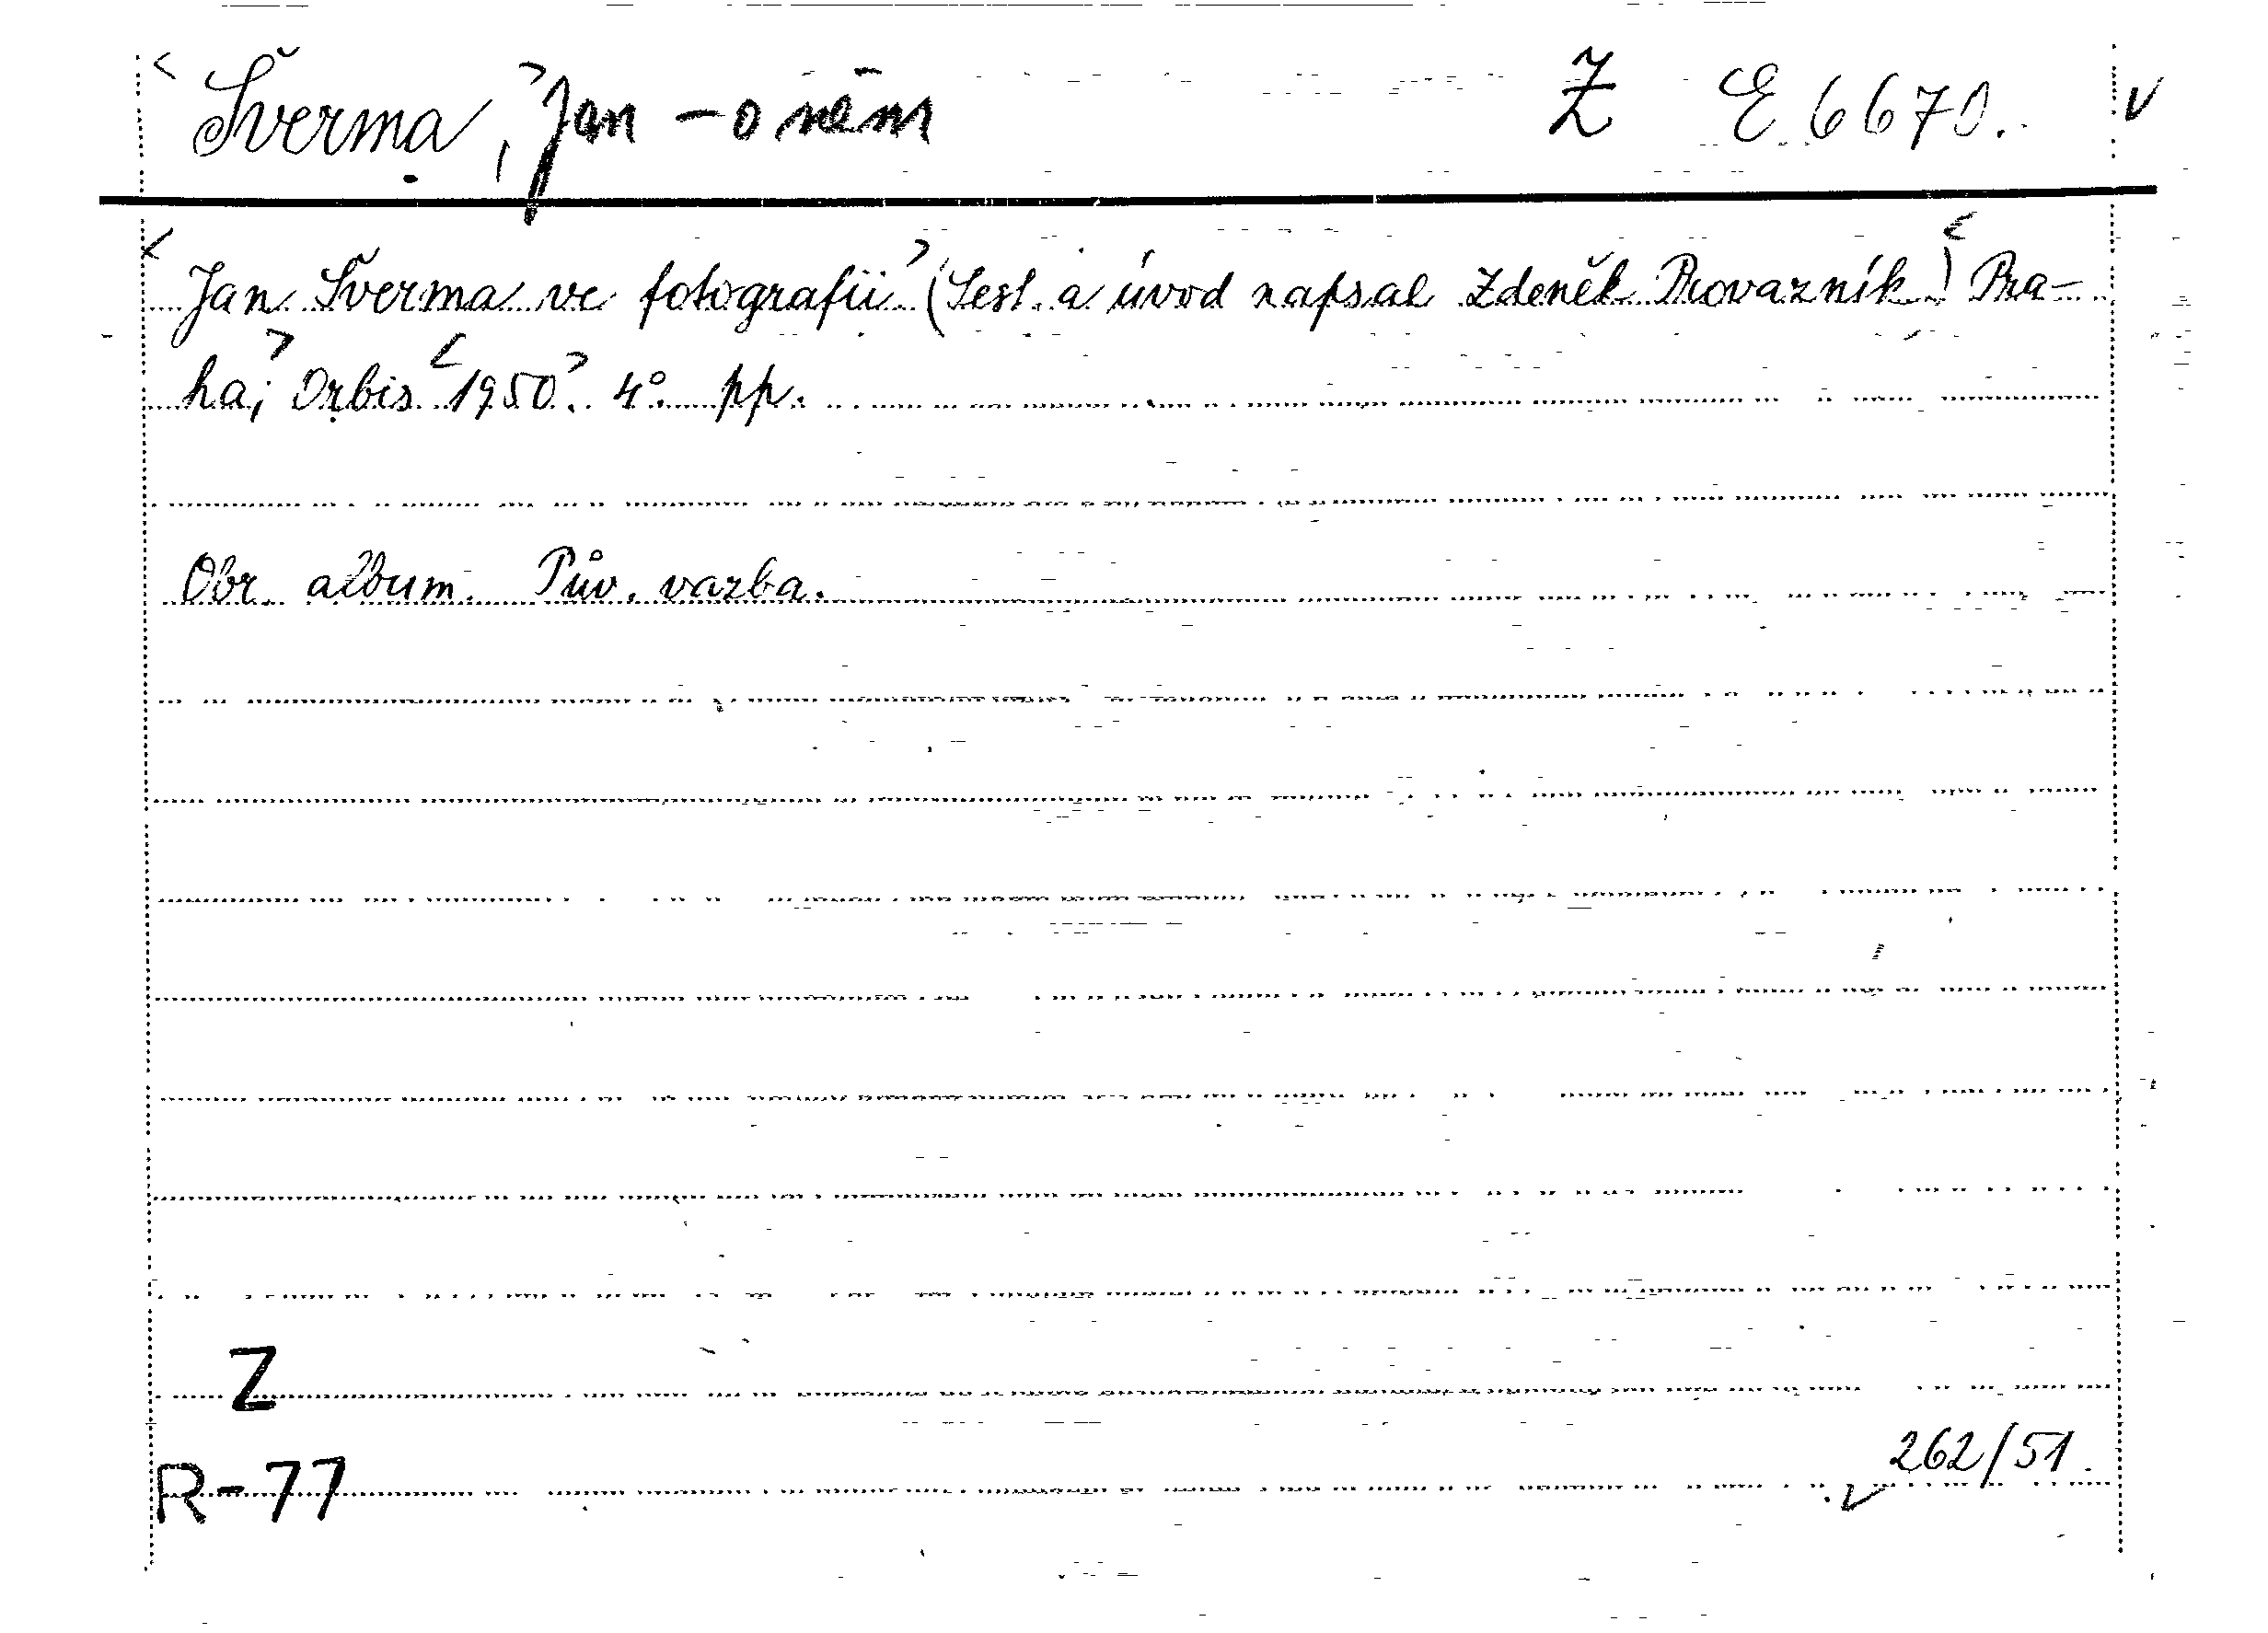 Šverma, Jan – o něm Z E 6670. v
Jan Šverma ve fotografii (Sest. a úvod napsal Zdeněk Provazník) Pra-
ha, Orbis 1950. 4°. pp.
Obr. album. Pův. vazba.
Z
262/51.
R-77